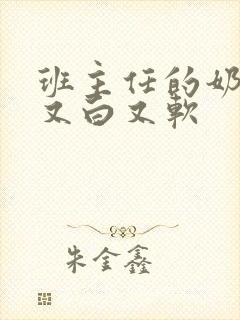 班主任的奶
又白又软
朱金鑫